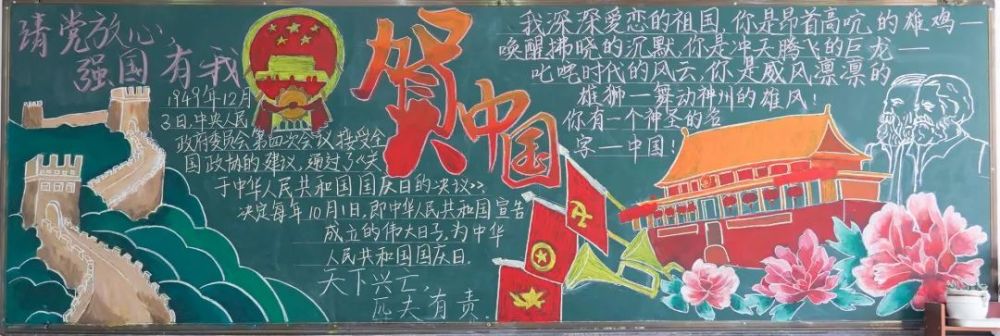 请党放心，
强国有我
1949年12月
3日，中央人民
政府委员会第四次会议接受全
国政协的建议，通过了《关
于中华人民共和国国庆日的决议》，
决定每年10月1日，即中华人民共和国宣告
成立的伟大日子，为中华
人民共和国国庆日．
天下兴亡，
匹夫有责．
贺中国
我深深爱恋的祖国，你是昂首高吭的雄鸡一
唤醒拂晓的沉默，你是冲天腾飞的巨龙一
叱咤时代的风云，你是威风凛凛的
雄狮一舞动神州的雄风！
你有一个神圣的名
字一中国！